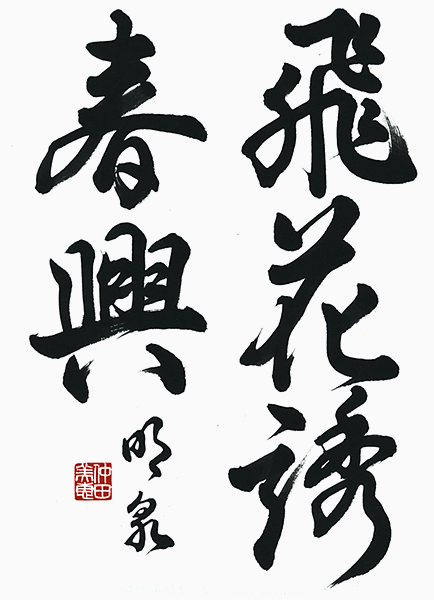 飛花誘
春興
明泉
仲田